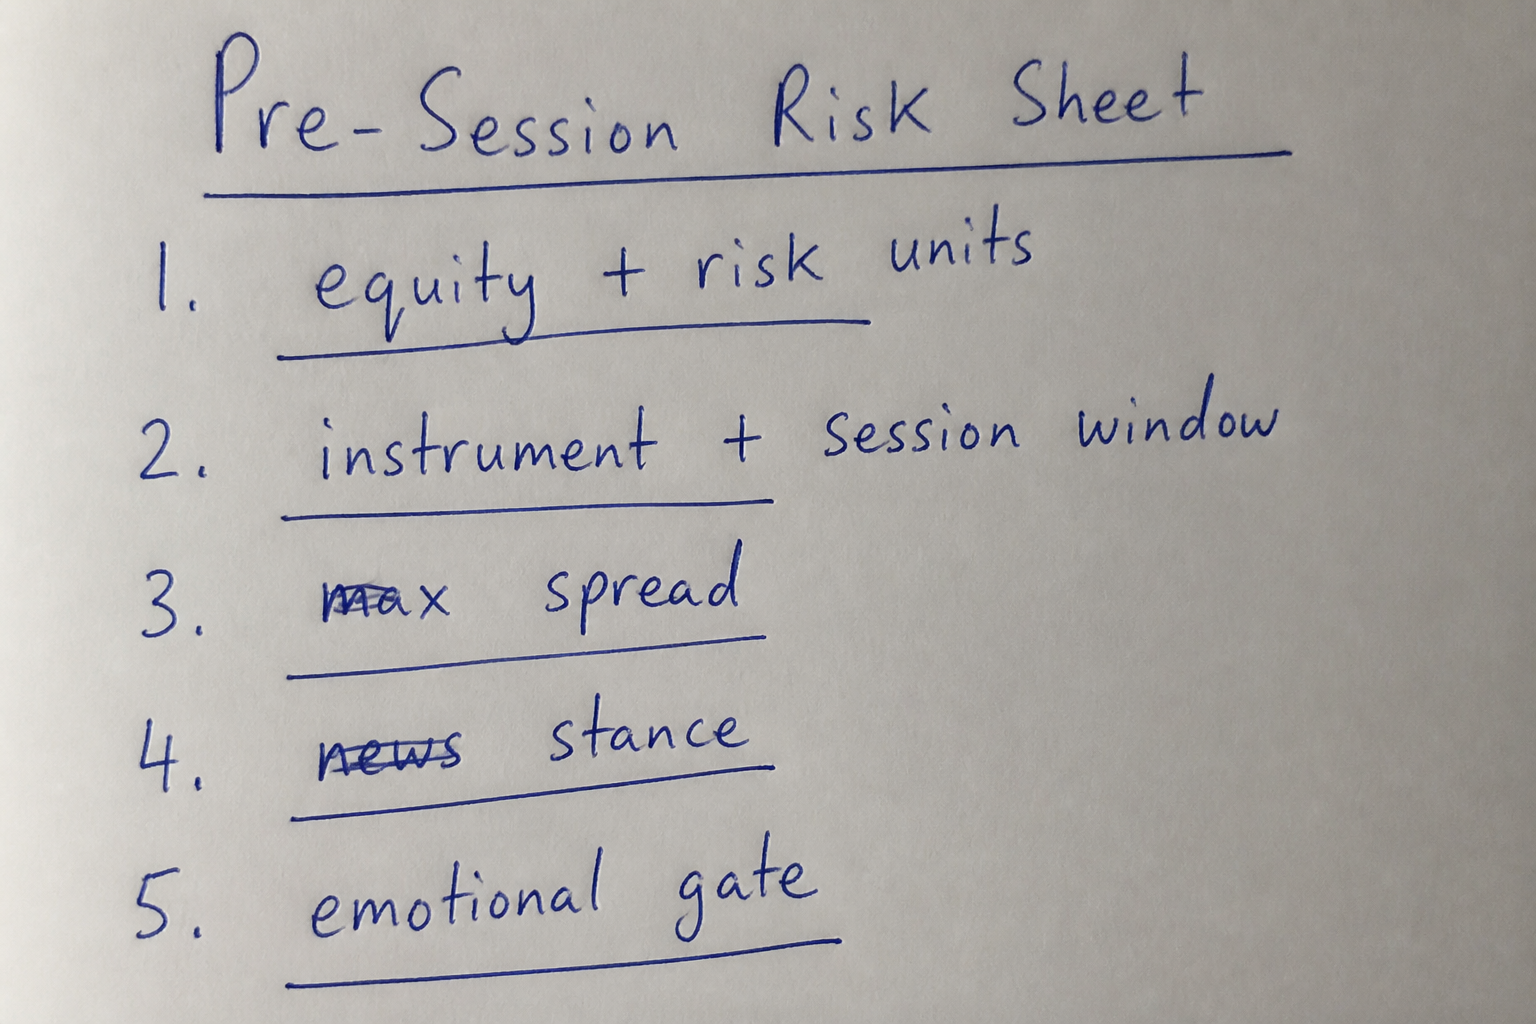 Pre-Session Risk Sheet
1. equity + risk units
2. instrument + session window
3. max spread
4. news stance
5. emotional gate